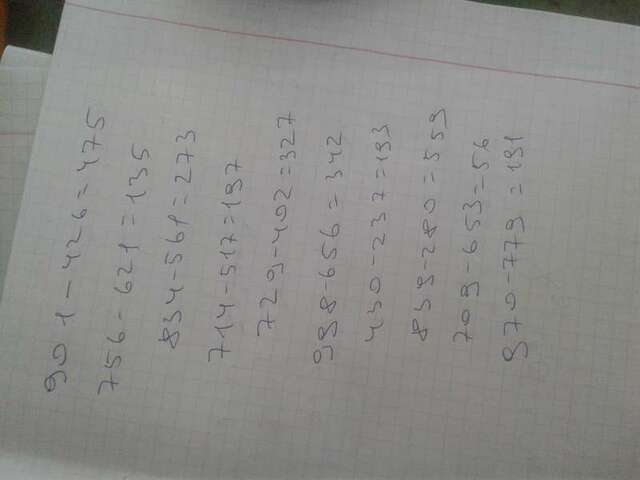 901-426=475
756-621=135
834-561=273
714-517=197
729-402=327
998-656=342
430-237=193
839-280=559
709-653=56
970-779=191